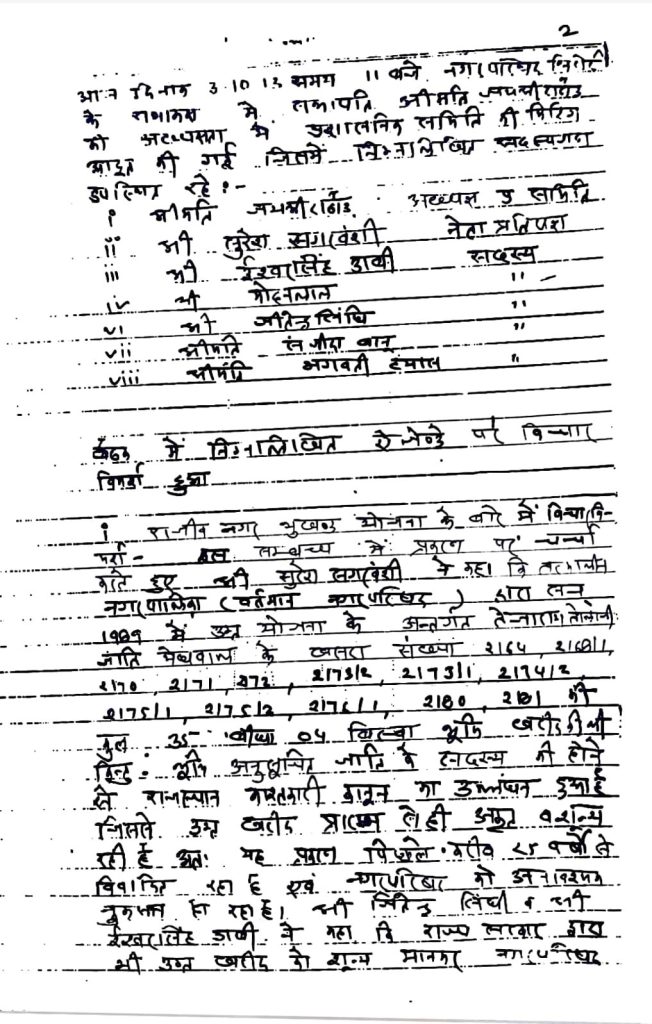 2
आज दिनांक 3.10.13 समय 11 बजे नगरपरिषद सिरोही
के सभाकक्ष में सभापति श्रीमति जयश्री राठौड
की अध्यक्षता में प्रशासनिक समिति की मिटिंग
आहूत की गई जिसमें निम्नलिखित सदस्यगण
उपस्थित रहे :-
i श्रीमति जयश्री राठौड़ अध्यक्ष समिति
ii श्री सुरेश सगरवंशी नेता प्रतिपक्ष
iii श्री ईश्वरसिंह डाबी सदस्य
iv श्री मोहनलाल "
vi श्री जीतेन्द्र सिंघि "
vii श्रीमति बानू "
viii श्रीमति भगवती "
बैठक में निम्नलिखित ऐजेन्डे पर विचार
विमर्श हुआ
i राजीव नगर भुखण्ड योजना के बारे में विचार वि-
मर्श - इस सम्बन्ध में प्रकरण पर चर्चा
करते हुए श्री सुरेश सगरवंशी ने कहा कि तत्कालीन
नगरपालिका (वर्तमान नगरपरिषद) द्वारा सन्
1989 में उक्त योजना के अन्तर्गत
जाति मेघवाल के खसरा संख्या 2164, 2168/1,
2170, 2171, 2173/2, 2173/1, 2174/2,
2175/1, 2175/2, 2176/1, 2180, 2181 की
कुल 35 बीघा 04 बिस्वा भूमि खरीद की थी
किन्तु भूमि अनुसूचित जाति के सदस्य की होने
से राजस्थान काश्तकारी कानून का उल्लंघन हुआ है
जिससे उक्त खरीद प्रारम्भ से ही अकृत व शून्य
रही है अतः यह प्रकरण पिछले करीब 25 वर्षों से
विवादित रहा है एवं नगरपरिषद को अनावश्यक
नुकसान हो रहा है। श्री जितेन्द्र सिंघी व श्री
ईश्वरसिंह डाबी ने कहा कि राज्य सरकार द्वारा
भी उक्त खरीद को शून्य मानकर नगरपरिषद